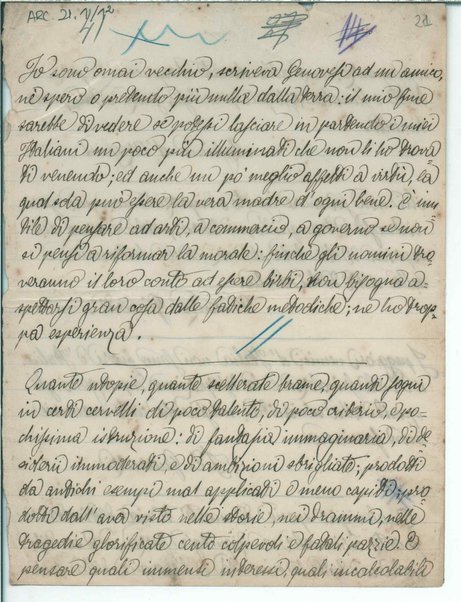 ARC. 21. V/1²
4
21
Io sono omai vecchio, scriveva Genovesi ad un amico,
nè spero o pretendo più nulla dalla terra: il mio fine
sarebbe di vedere se potessi lasciare in partendo i miei
Italiani un poco più illuminati che non li ho trova-
ti venendo; ed anche un po' meglio affetti a virtù, la
qual sola può essere la vera madre d'ogni bene. È inu-
tile di pensare ad arti, a commercio, a governo se non
si pensi a riformar la morale: finchè gli uomini tro-
veranno il loro conto ad essere birbi, non bisogna a-
spettarsi gran cosa dalle fatiche metodiche; ne ho trop-
pa esperienza.
Quante utopie, quante scellerate trame, quandi sogni
in certi cervelli di poco talento, di poco criterio, e po-
chissima istruzione: di fantasia immaginaria, di de-
siderii immoderati, e di ambizioni sbrigliate; prodotti
da antichi esempi mal applicati e meno capiti; pro-
dotti dall'aver visto nelle storie, nei drammi, nelle
tragedie glorificate cento colpevoli e fatali pazzie. E
pensare quali immensi interessi, quali incalcolabili